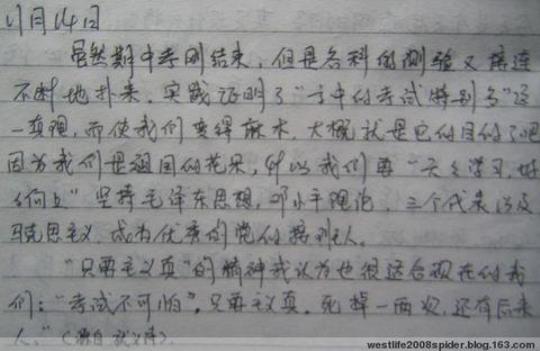 11月14日
虽然期中考刚结束，但是各科的测验又接连
不断地扑来，实践证明了“高中的考试特别多”这
一真理，而使我们变得麻木，大概就是它的目的了吧
因为我们是祖国的花朵，所以我们要“天天学习，好
好向上”坚持毛泽东思想，邓小平理论，三个代表以及
马克思主义，成为优秀的党的接班人。
“只要主义真”的精神我认为也很适合现在的我
们：“考试不可怕”，只要主义真。死掉一两次，还有后来
人。”（摘自
westlife2008spider.blog.163.com